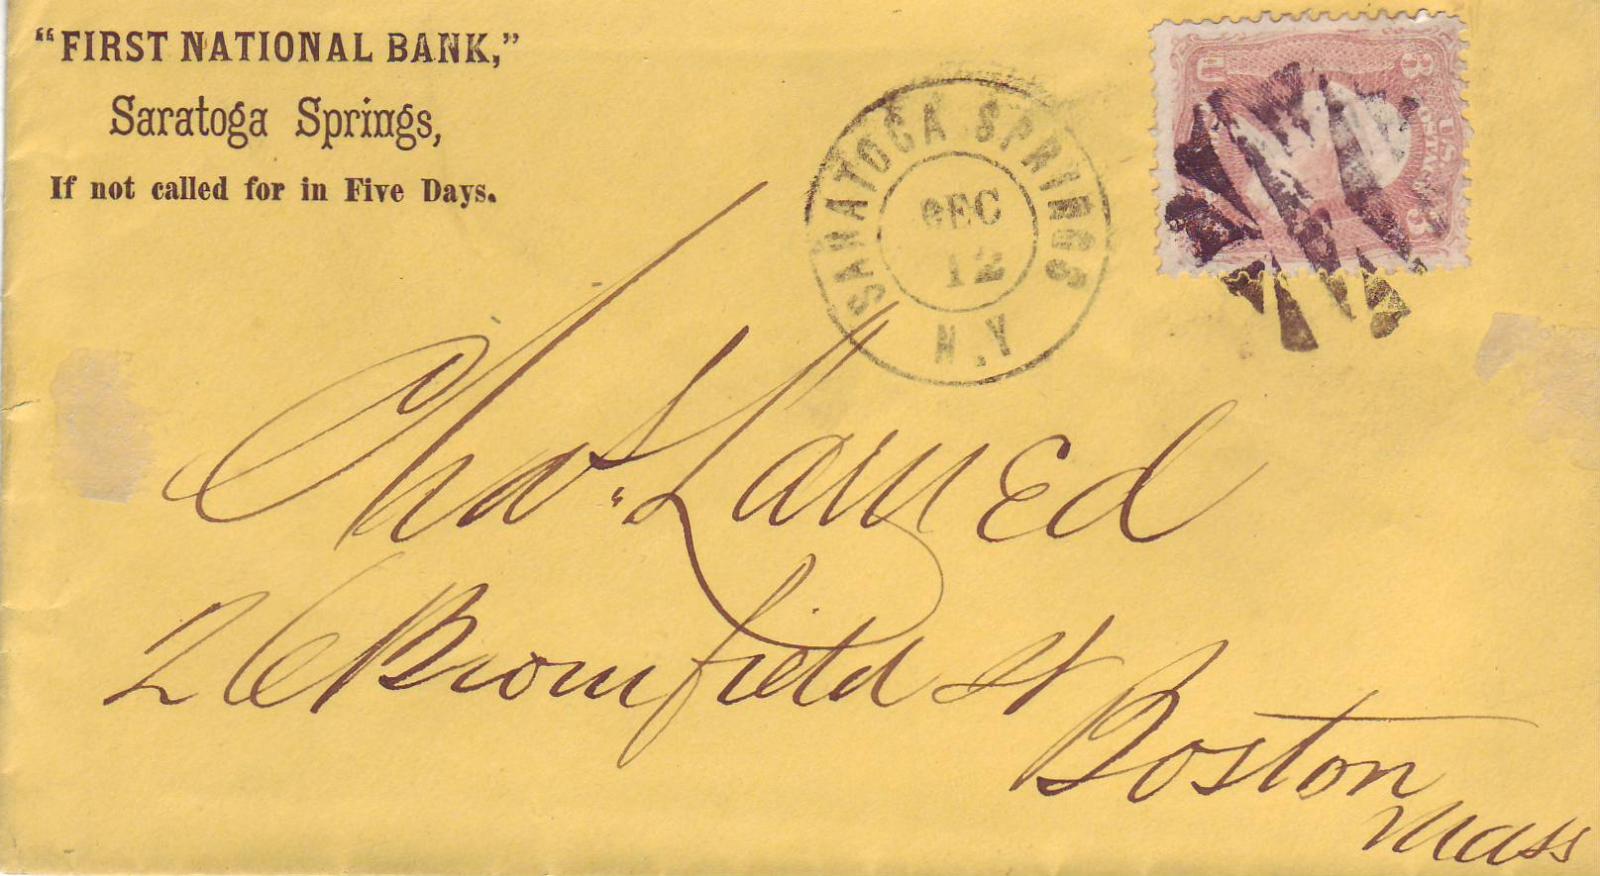 “FIRST NATIONAL BANK,”
Saratoga Springs,
If not called for in Five Days.
SARATOGA SPRINGS
DEC
12
N.Y
U
3
U.S.
3
Chas. Larned
26 Bromfield St
Boston
Mass